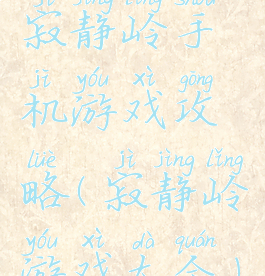 jì jìng lǐng shǒu
寂静岭手
jī yóu xì gōng
机游戏攻
lüè jì jìng lǐng
略(寂静岭
yóu xì dà quán
游戏大全)